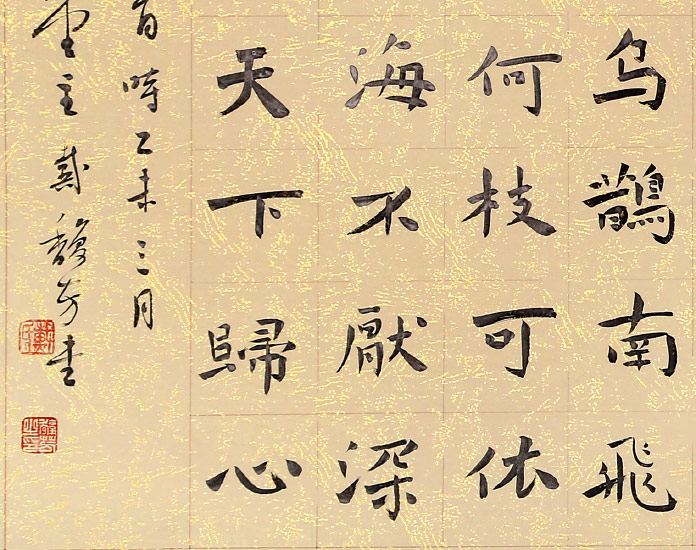 乌鵲南飛
何枝可依
海不厭深
天下歸心
時乙未三月
主戴馥芳書